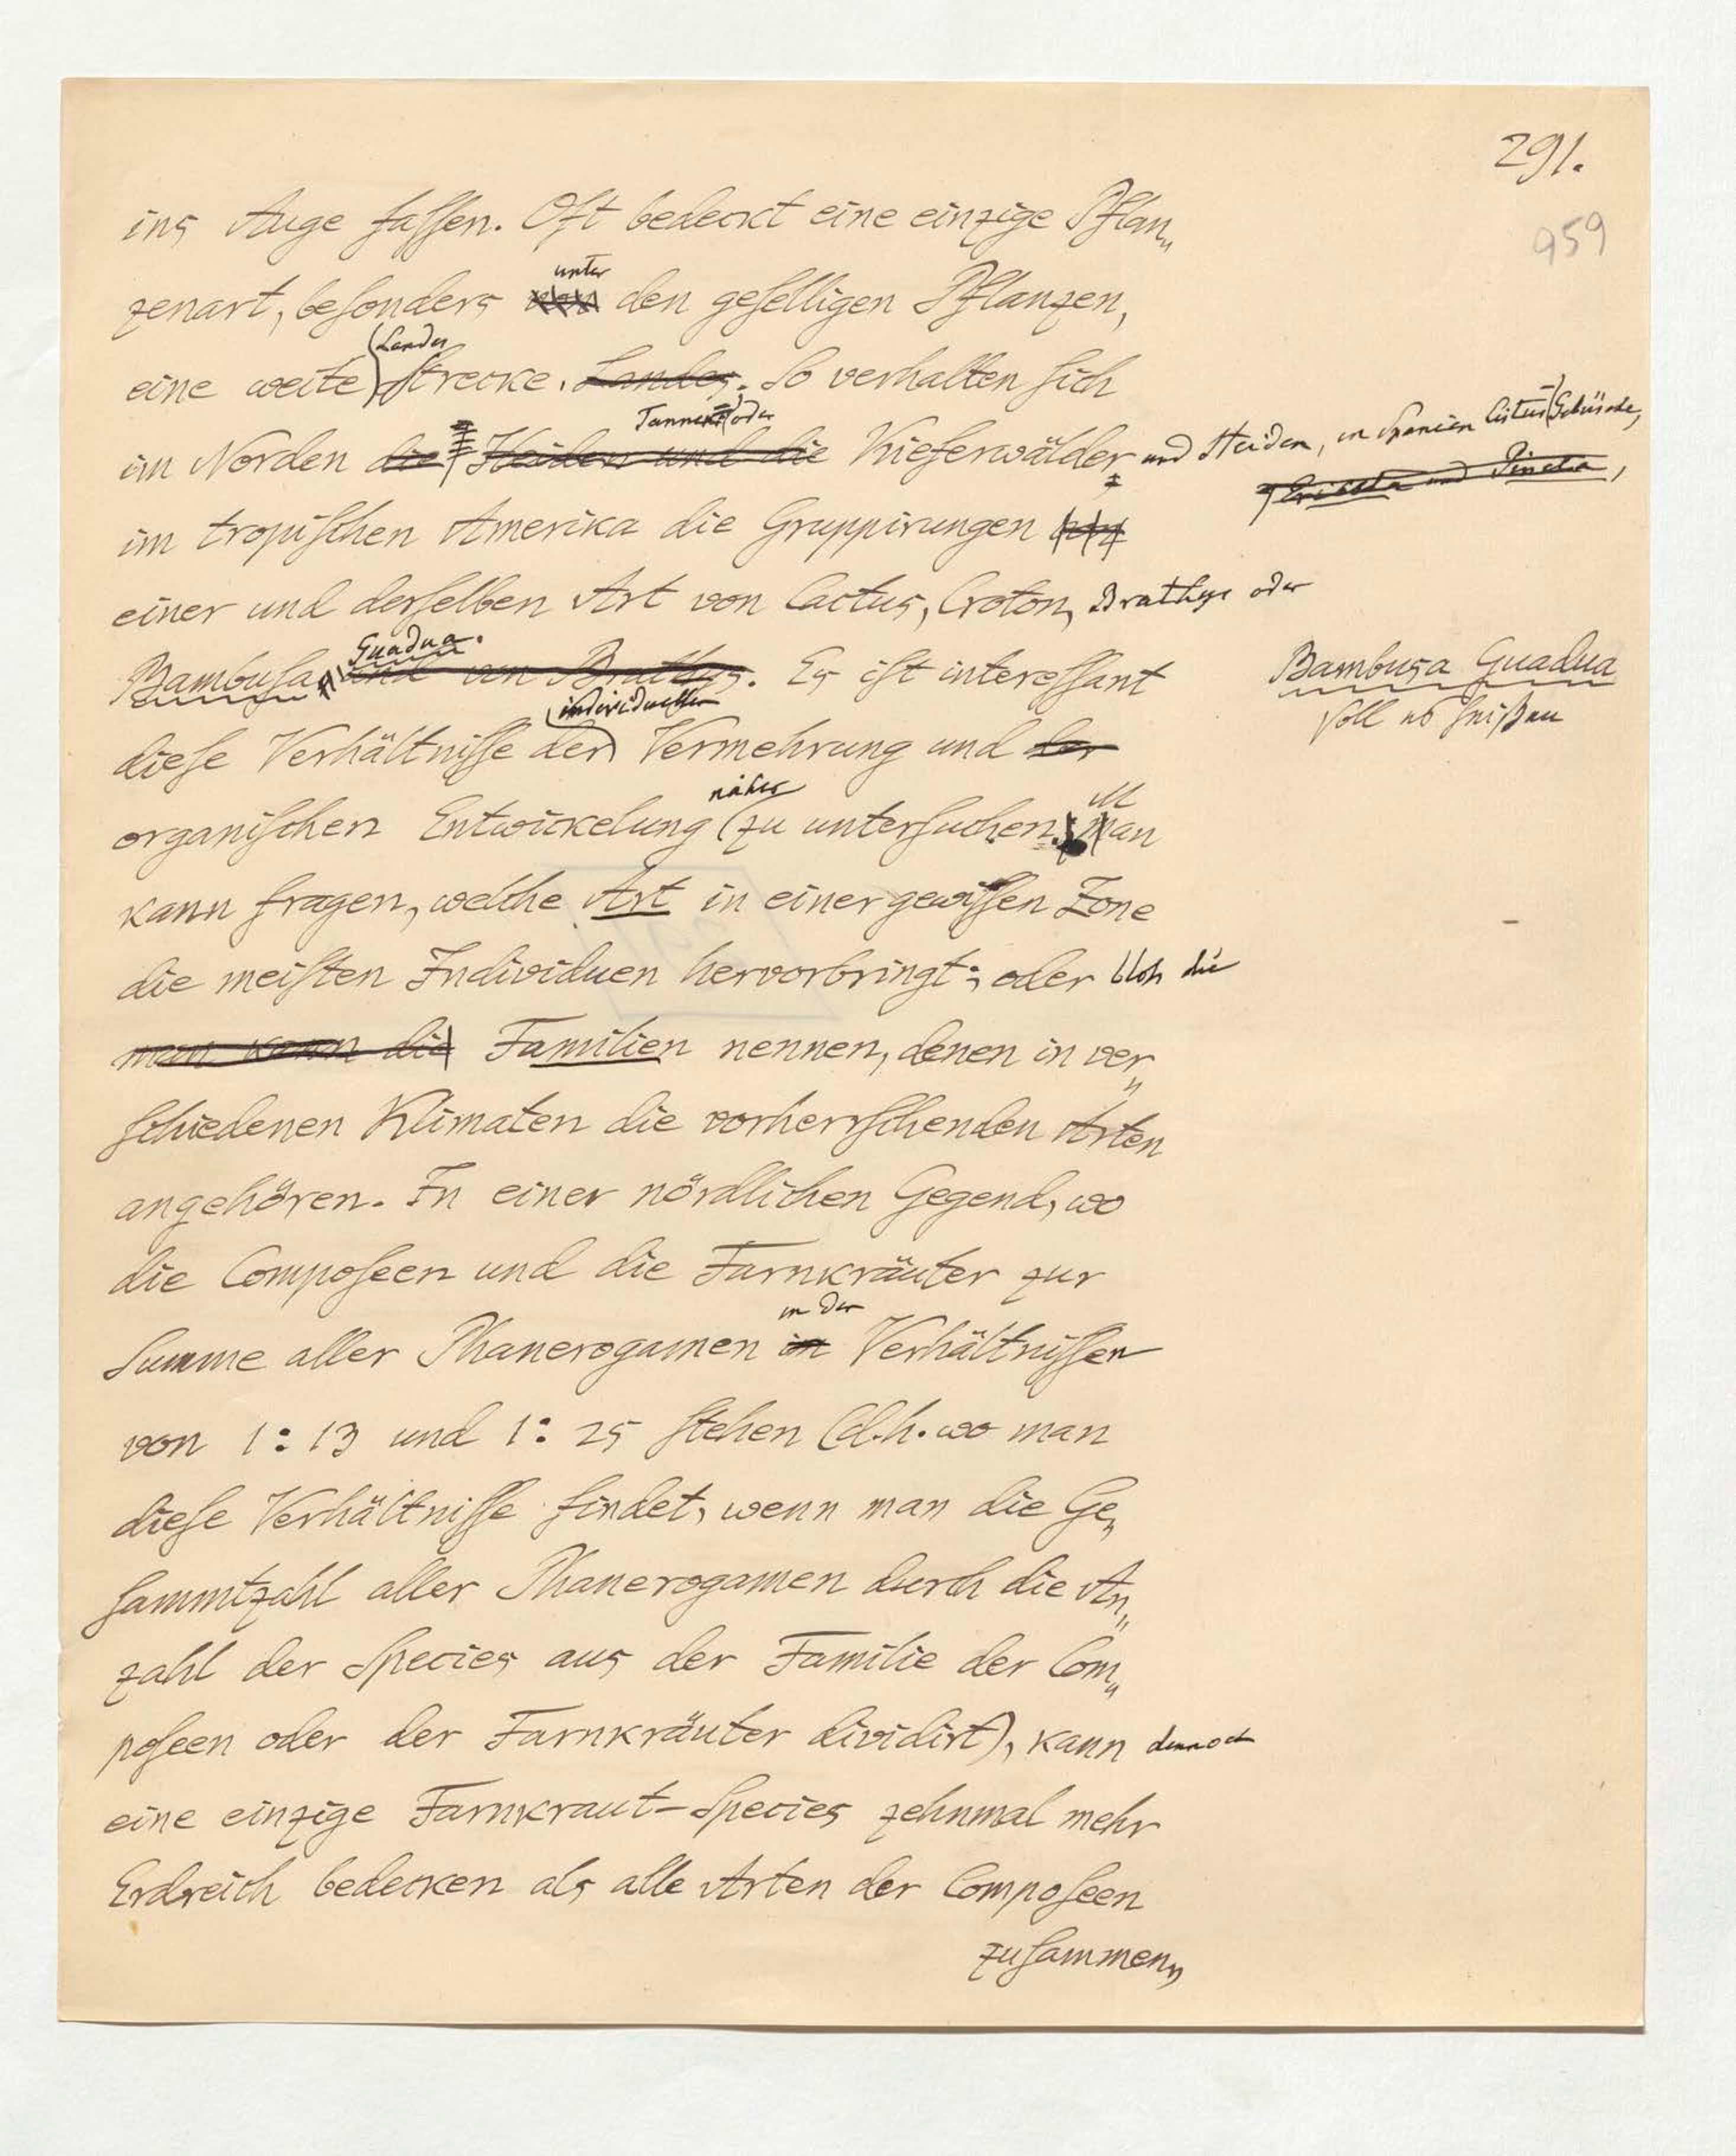 291.
959
ins Auge faſſen. Oft bedeckt eine einzige Pflan„
unter
zenart, beſonders von den geſelligen Pflanzen,
Landes
eine weite Strecke. Landes. So verhalten ſich
Tannen- oder
im Norden die Heiden und die Kieferwälder und Heiden, in Spanien Cistus-Gebüsche,
Ericeta und Pineta,
im tropiſchen Amerika die Gruppirungen
einer und derſelben Art von Cactus, Croton, Brathys oder
Guadua.
Bambuſa und von Brathys. Es iſt intereſſant
Bambusa Guadua
ſoll es heißen
individuellen
dieſe Verhältniſſe der Vermehrung und der
näher
organiſchen Entwickelung zu unterſuchen. Man
kann fragen, welche Art in einer gewiſſen Zone
die meiſten Individuen hervorbringt; oder bloß die
man kann die Familien nennen, denen in ver„
ſchiedenen Klimaten die vorherrſchenden Arten
angehören. In einer nördlichen Gegend, wo
die Compoſeen und die Farnkräuter zur
in den
Summe aller Phanerogamen in Verhältniſſen
von 1:13 und 1:25 ſtehen (d.h. wo man
dieſe Verhältniſſe findet, wenn man die Ge„
ſammtzahl aller Phanerogamen durch die An„
zahl der Species aus der Familie der Com„
poſeen oder der Farnkräuter dividirt), kann dennoch
eine einzige Farnkraut-Species zehnmal mehr
Erdreich bedecken als alle Arten der Compoſeen
zuſammen„